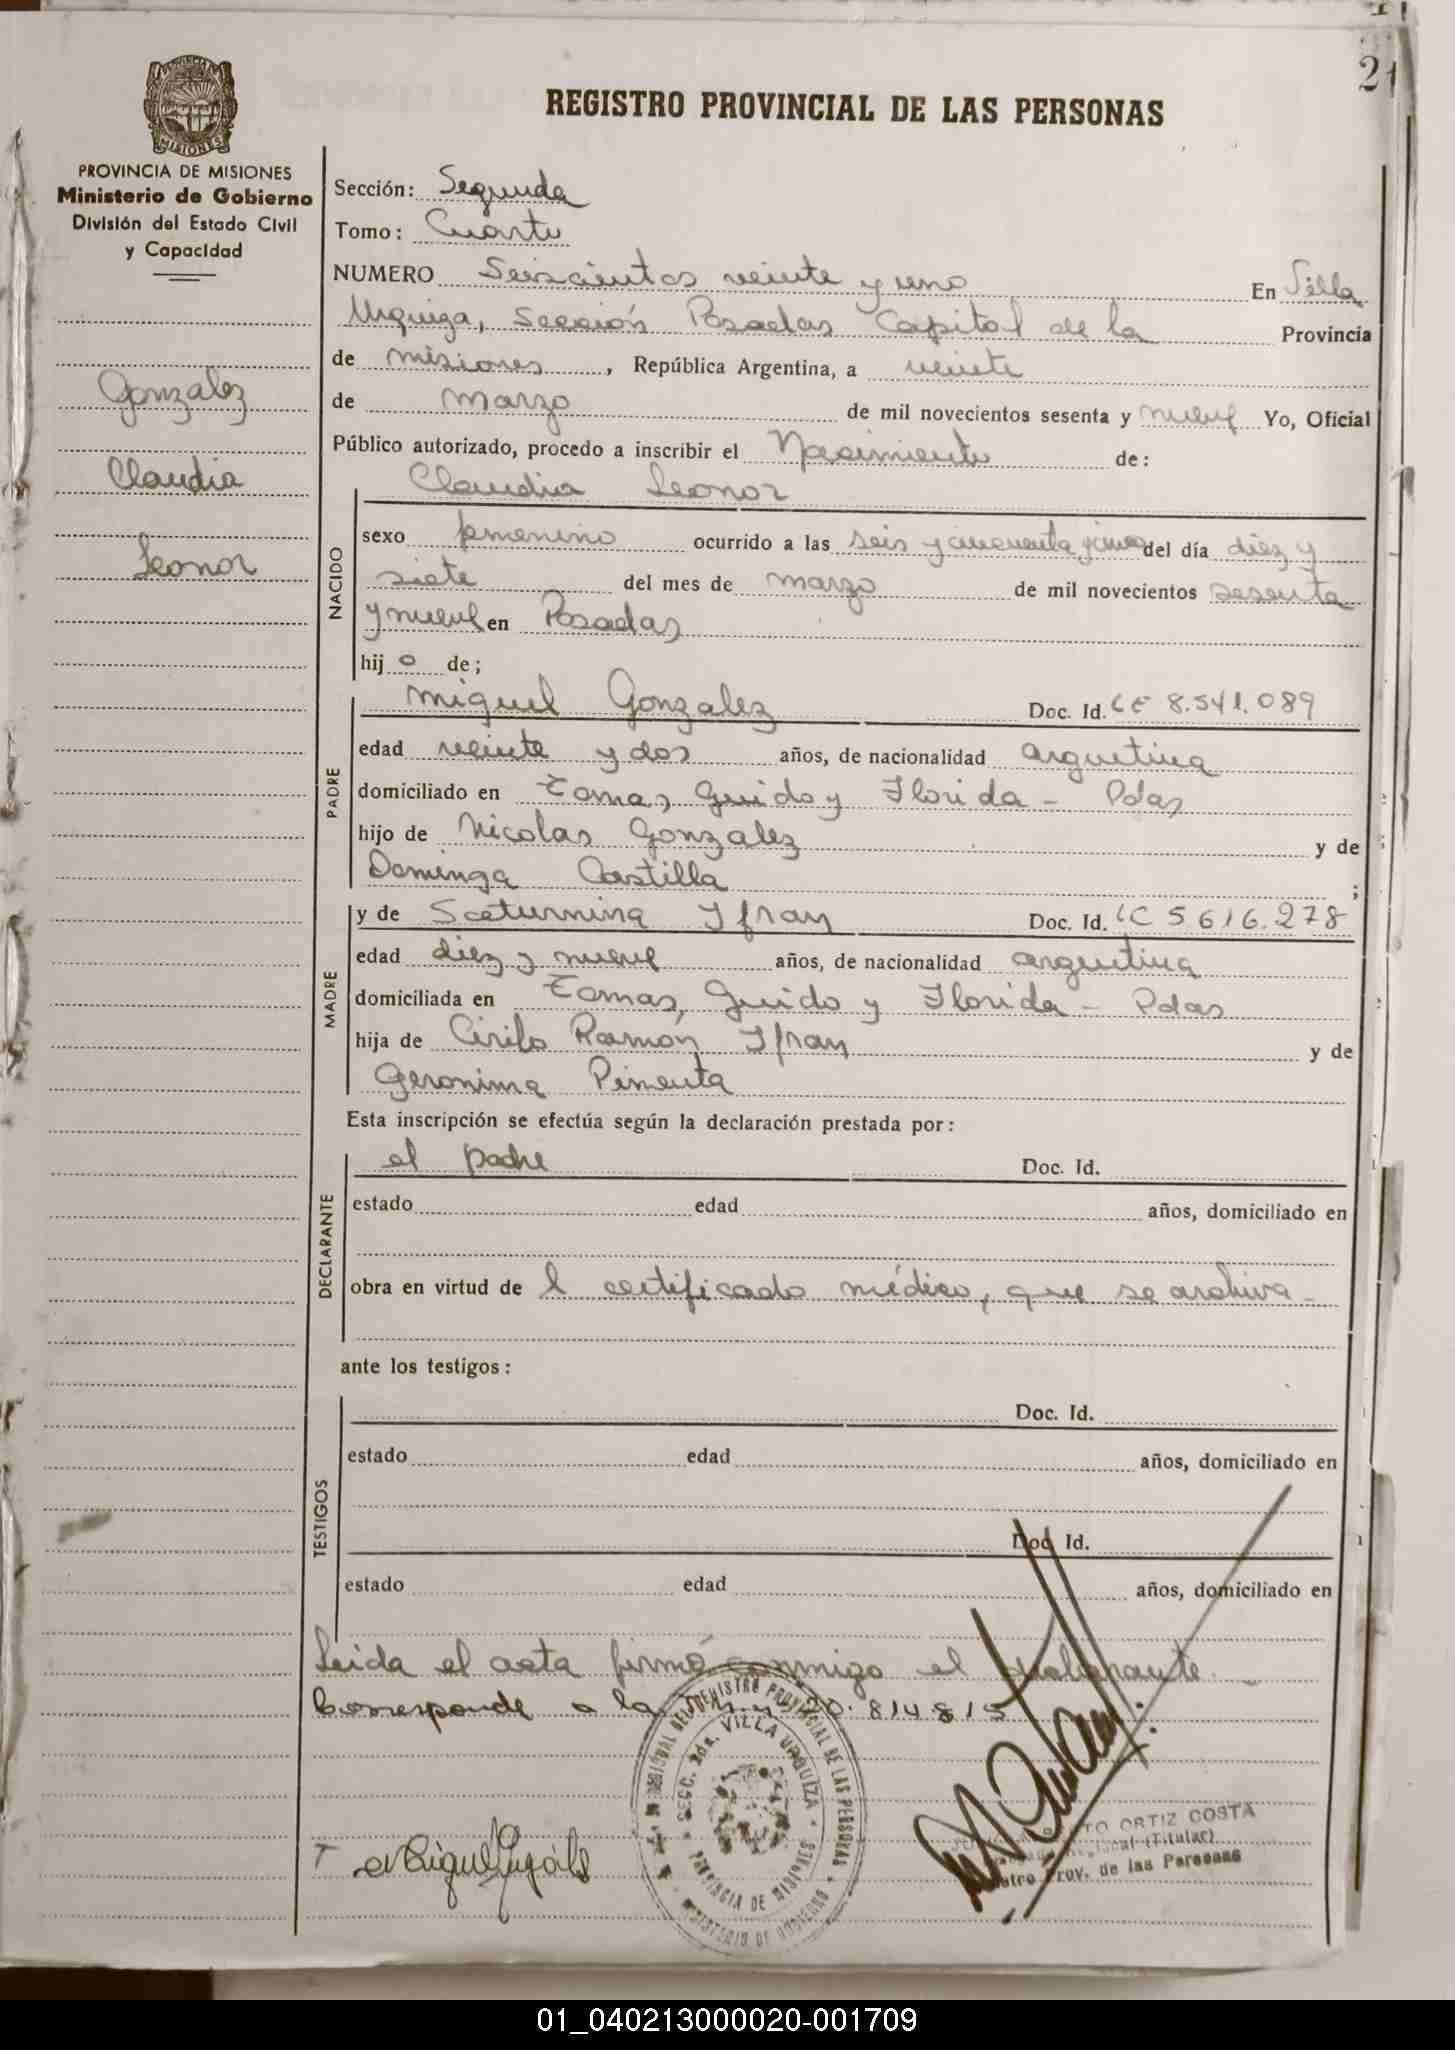 21
REGISTRO PROVINCIAL DE LAS PERSONAS
MISIONES
PROVINCIA DE MISIONES
Ministerio de Gobierno
División del Estado Civil
y Capacidad
Gonzalez
Claudia
Leonor
Sección: Segunda
Tomo: Cuarto
NUMERO Seiscientos veinte y uno En Villa
Urquiza, Sección Posadas Capital de la Provincia
de misiones, República Argentina, a veinte
de marzo de mil novecientos sesenta y nueve Yo, Oficial
Público autorizado, procedo a inscribir el Nacimiento de:
Claudia Leonor
NACIDO
sexo femenino ocurrido a las seis y cincuenta y cinco del día diez y
siete del mes de marzo de mil novecientos sesenta
y nueve en Posadas
hij o de;
PADRE
Miguel Gonzalez Doc. Id. LE 8.541.089
edad veinte y dos años, de nacionalidad argentina
domiciliado en Tomas Guido y Florida - Pdas
hijo de Nicolas Gonzalez y de
Dominga Castilla ;
MADRE
y de Saturnina Ifran Doc. Id. LC 5.616.278
edad diez y nueve años, de nacionalidad argentina
domiciliada en Tomas Guido y Florida - Pdas
hija de Cirilo Ramón Ifran y de
Geronima Pimenta
Esta inscripción se efectúa según la declaración prestada por:
DECLARANTE
el padre Doc. Id.
estado edad años, domiciliado en
obra en virtud de l certificado médico, que se archiva-
ante los testigos:
TESTIGOS
Doc. Id.
estado edad años, domiciliado en
Doc. Id.
estado edad años, domiciliado en
Leida el acta firmó conmigo el declarante.
Corresponde a la 20.814.815
REGISTRO PROVINCIAL DE LAS PERSONAS
SECC. 2da. VILLA URQUIZA
PROVINCIA DE MISIONES
MINISTERIO DE GOBIERNO
ORTIZ COSTA
(Titular)
Prov. de las Personas
01_040213000020-001709